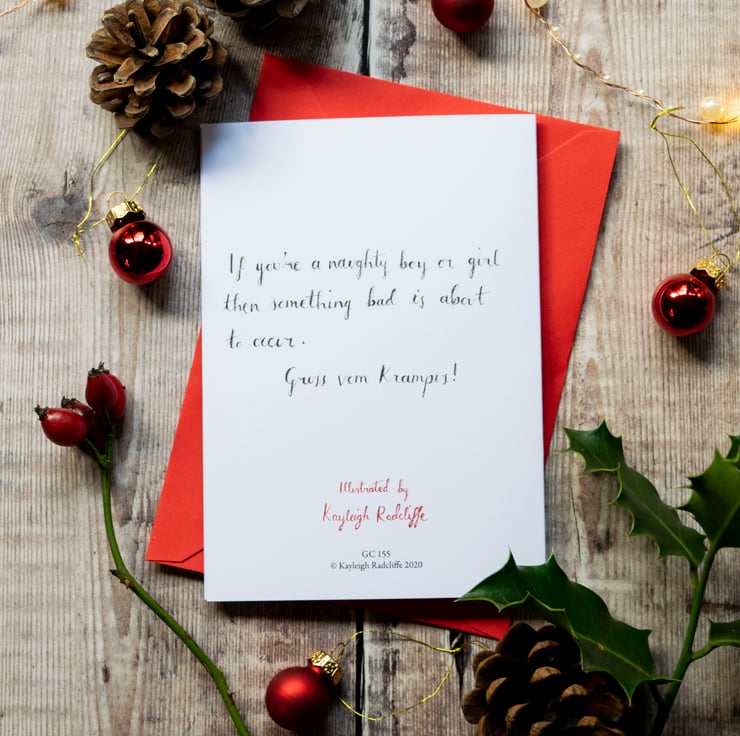 If you're a naughty boy or girl
then something bad is about
to occur.
Gruss vom Krampus!
Illustrated by
Kayleigh Radcliffe
GC 155
© Kayleigh Radcliffe 2020